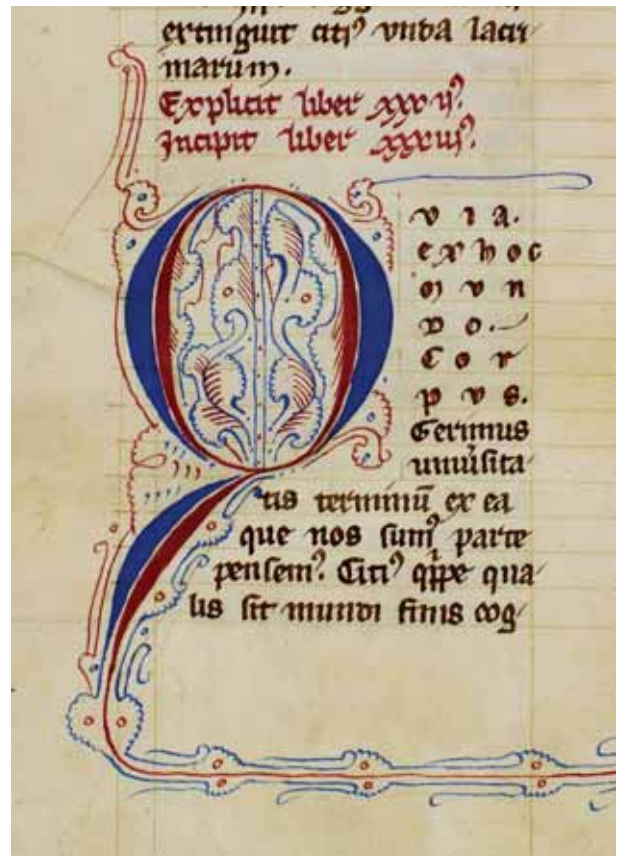 extinguit citiꝰ vnda lacri
marum.
Explicit liber xxxijꝰ.
Incipit liber xxxiijꝰ.
Q v i a.
e x h o c
m v n
d o.
C o r
p v s.
Gerimus
vniũsita
tis terminũ ex ea
que nos sumꝰ parte
pensemꝰ. Citiꝰ qippe qua
lis sit mundi finis cog